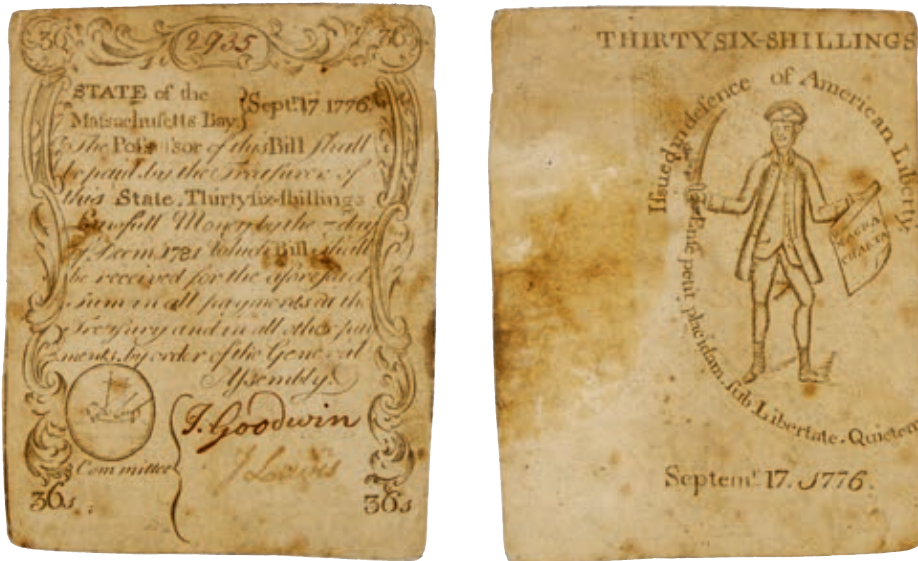 36 2935 76
STATE of the
Massachusetts Bay.
Sept.r 17 1776.
The Pos sor of this Bill shall
be paid by the Treasurer of
this State. Thirty six-shillings
Lawfull Money by the 7 day
of Decm. 1781 Which Bill shall
be received for the aforesaid
sum in all payments at the
Treasury and in all other pay
ments. by order of the General
Assembly.
J. Goodwin
Committee
36s 36s
THIRTY SIX-SHILLINGS
Issued in defence of American Liberty.
Ense petit placidam, sub Libertate. Quietem
MAGNA
CHARTA
Septem.r 17. 1776.